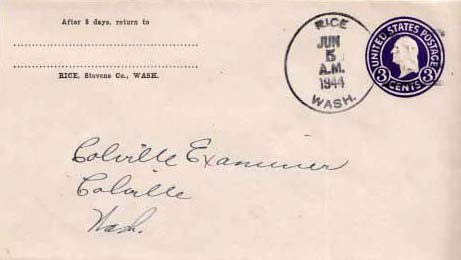 After 5 days, return to
RICE, Stevens Co., WASH.
RICE
JUN
5
A.M.
1944
WASH.
UNITED STATES POSTAGE
3 CENTS 3
Colville Examiner
Colville
Wash.